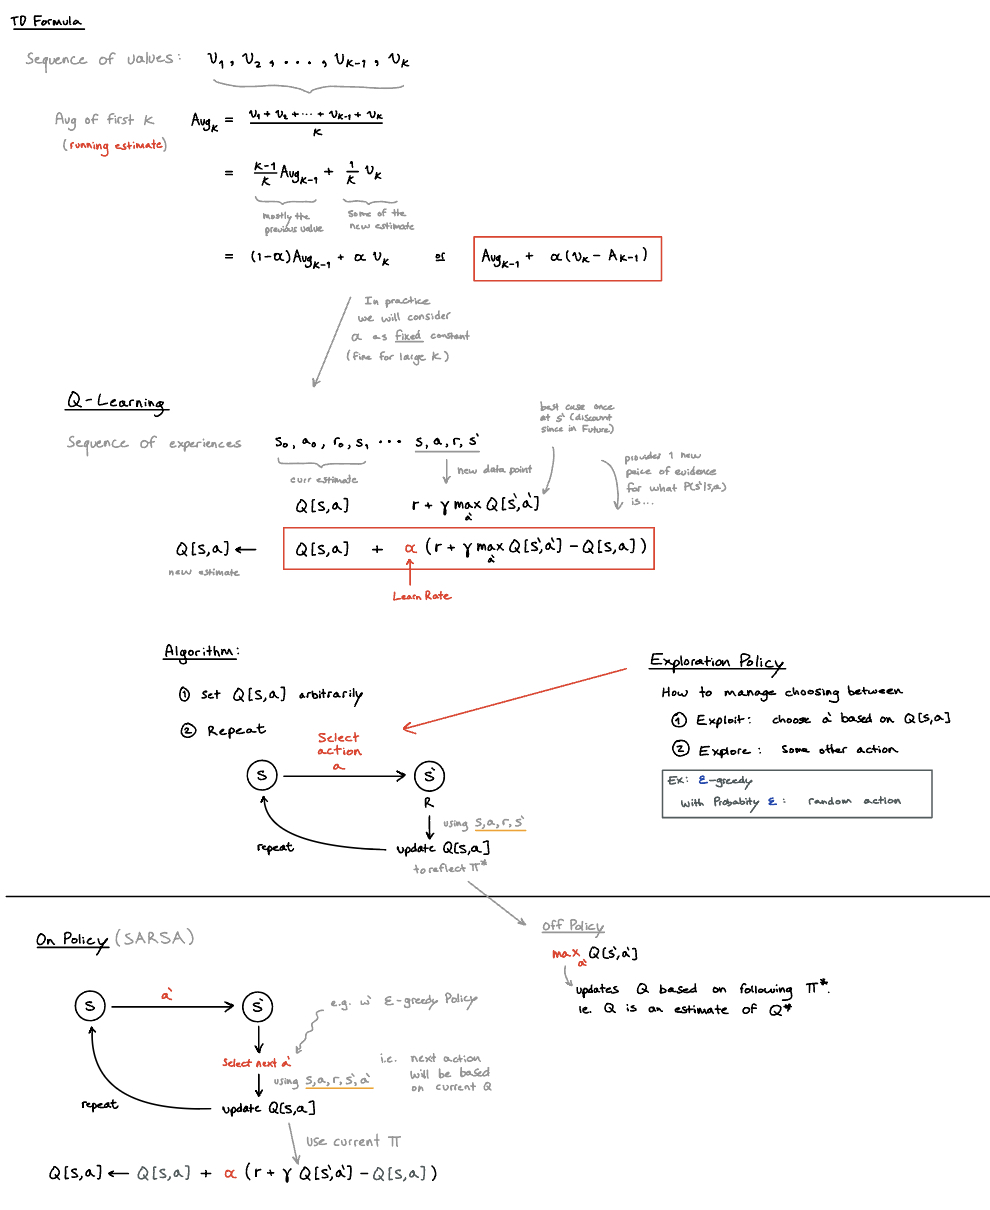 TD Formula
Sequence of values: v₁, v₂, ..., vₖ₋₁, vₖ
Avg of first K Avgₖ = (v₁ + v₂ + ⋯ + vₖ₋₁ + vₖ) / K
(running estimate)
= (K-1)/K Avgₖ₋₁ + 1/K vₖ
mostly the previous value
some of the new estimate
= (1-α)Avgₖ₋₁ + α vₖ or Avgₖ₋₁ + α(vₖ - Aₖ₋₁)
In practice
we will consider
α as fixed constant
(fine for large K)
Q-Learning
best case once
at s' (discount
since in Future)
Sequence of experiences s₀, a₀, r₀, s₁ ⋯ s, a, r, s'
curr estimate
new data point
provides 1 new
peice of evidence
for what P(s'|s,a)
is...
Q[s,a] r + γ max_a' Q[s',a']
Q[s,a] ← Q[s,a] + α (r + γ max_a' Q[s',a'] - Q[s,a])
new estimate
Learn Rate
Algorithm:
① set Q[s,a] arbitrarily
② Repeat
Select
action
a
S S'
R
using s,a,r,s'
update Q[s,a]
repeat
to reflect π*
Exploration Policy
How to manage choosing between
① Exploit: choose a' based on Q[s,a]
② Explore: Some other action
Ex: ε-greedy
with Probabity ε: random action
On Policy (SARSA)
S a' S'
e.g. w' ε-greedy Policy
Select next a'
using s,a,r,s',a'
i.e. next action
will be based
on current Q
update Q[s,a]
repeat
use current π
Q[s,a] ← Q[s,a] + α (r + γ Q[s',a'] - Q[s,a])
Off Policy
max_a' Q[s',a']
updates Q based on following π*.
ie. Q is an estimate of Q*